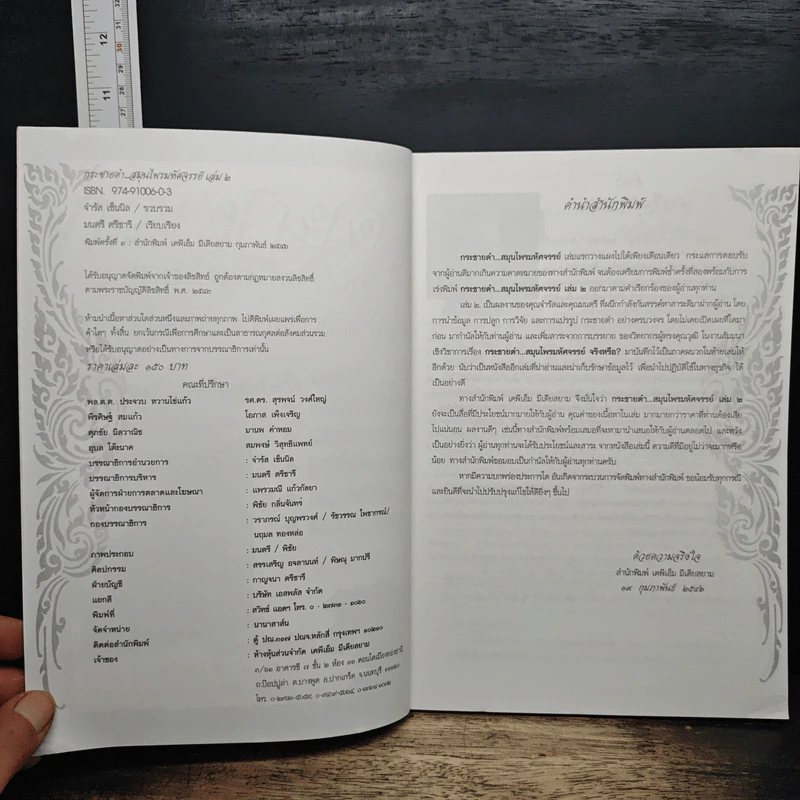 12
11
32
31
30
29
28
27
กระชายดำ...สมุนไพรมหัศจรรย์ เล่ม ๒
ISBN. 974-91006-0-3
จำรัส เซ็นนิล / รวบรวม
มนตรี ตรีชารี / เรียบเรียง
พิมพ์ครั้งที่ ๑ : สำนักพิมพ์ เคพีเอ็ม มีเดียสยาม กุมภาพันธ์ ๒๕๔๖
ได้รับอนุญาตจัดพิมพ์จากเจ้าของลิขสิทธิ์ ถูกต้องตามกฎหมายสงวนลิขสิทธิ์
ตามพระราชบัญญัติลิขสิทธิ์ พ.ศ. ๒๕๔๓
ห้ามนำเนื้อหาส่วนใดส่วนหนึ่งและภาพถ่ายทุกภาพ ไปตีพิมพ์เผยแพร่เพื่อการ
ค้าใดๆ ทั้งสิ้น ยกเว้นกรณีเพื่อการศึกษาและเป็นสาธารณกุศลต่อสังคมส่วนรวม
หรือได้รับอนุญาตอย่างเป็นทางการจากบรรณาธิการเท่านั้น
ราคาเล่มละ ๑๕๐ บาท
คณะที่ปรึกษา
พล.ต.ต. ประจวบ หวานใช่แก้ว รศ.ดร. สุรพจน์ วงศ์ใหญ่
พีรศิษฐ์ สมแก้ว โอภาส เพ็งเจริญ
ศุภชัย นิลวานิช มานพ ค่าหอม
อุบล โต๊ะนาค สมพงษ์ วิสุทธิแพทย์
บรรณาธิการอำนวยการ : จำรัส เซ็นนิล
บรรณาธิการบริหาร : มนตรี ตรีชารี
ผู้จัดการฝ่ายการตลาดและโฆษณา : แพรวมณี แก้วกัลยา
หัวหน้ากองบรรณาธิการ : พิชัย กลิ่นจันทร์
กองบรรณาธิการ : วราภรณ์ บุญพรวงศ์ / รัชวรรณ โพธากรณ์/
นฤมล ทองหล่อ
ภาพประกอบ : มนตรี / พิชัย
ศิลปกรรม : สรรเสริญ อจลานนท์ / พิษณุ มากปรี
ฝ่ายบัญชี : กาญจนา ตรีชารี
แยกสี : บริษัท เอสพลัส จำกัด
พิมพ์ที่ : สวิทย์ แอดฯ โทร. ๐ - ๒๗๓๑ - ๑๐๖๐
จัดจำหน่าย : นานาสาส์น
ติดต่อสำนักพิมพ์ : ตู้ ปณ.๓๑๗ ปณจ.หลักสี่ กรุงเทพฯ ๑๐๒๑๐
เจ้าของ : ห้างหุ้นส่วนจำกัด เคพีเอ็ม มีเดียสยาม
๓/๖๑ อาคารซี ๗ ชั้น ๒ ห้อง ๑๑ คอนโดเมืองทองธานี
ถ.ป๊อปปูล่า ต.บางพูด อ.ปากเกร็ด จ.นนทบุรี ๑๑๑๒๐
โทร.
คำนำสำนักพิมพ์
กระชายดำ...สมุนไพรมหัศจรรย์ เล่มแรกวางแผงไปได้เพียงเดือนเดียว กระแสการตอบรับ
จากผู้อ่านดีมากเกินความคาดหมายของทางสำนักพิมพ์ จนต้องเตรียมการพิมพ์ซ้ำครั้งที่สองพร้อมกับการ
เร่งพิมพ์ กระชายดำ...สมุนไพรมหัศจรรย์ เล่ม ๒ ออกมาตามคำเรียกร้องของผู้อ่านทุกท่าน
เล่ม ๒. เป็นผลงานของคุณจำรัสและคุณมนตรี ที่ผนึกกำลังกันสรรค์หาสาระดีมาฝากผู้อ่าน โดย
การนำข้อมูล การปลูก การวิจัย และการแปรรูป กระชายดำ อย่างครบวงจร โดยไม่เคยเปิดเผยที่ใดมา
ก่อน มากำนัลให้กับท่านผู้อ่าน และเพิ่มสาระจากการบรรยาย ของวิทยากรผู้ทรงคุณวุฒิ ในงานสัมมนา
เชิงวิชาการเรื่อง กระชายดำ...สมุนไพรมหัศจรรย์ จริงหรือ? มาบันทึกไว้เป็นภาคผนวกในท้ายเล่มให้
อีกด้วย นับว่าเป็นหนังสืออีกเล่มที่น่าอ่านและน่าเก็บรักษาข้อมูลไว้ เพื่อนำไปปฏิบัติใช้ในทางธุรกิจ ได้
เป็นอย่างดี
ทางสำนักพิมพ์ เคพีเอ็ม มีเดียสยาม จึงมั่นใจว่า กระชายดำ...สมุนไพรมหัศจรรย์ เล่ม ๒
ยังจะเป็นสื่อที่มีประโยชน์มากมายให้กับผู้อ่าน คุณค่าของเนื้อหาในเล่ม มากมายกว่าราคาที่ท่านต้องเสีย
ไปแน่นอน ผลงานดีๆ เช่นนี้ทางสำนักพิมพ์พร้อมเสมอที่จะหามานำเสนอให้กับผู้อ่านตลอดไป และหวัง
เป็นอย่างยิ่งว่า ผู้อ่านทุกท่านจะได้รับประโยชน์และสาระ จากหนังสือเล่มนี้ ความดีที่มีอยู่ไม่ว่าจะมากหรือ
น้อย ทางสำนักพิมพ์ขอมอบเป็นกำนัลให้กับผู้อ่านทุกท่านครับ
หากมีความบกพร่องประการใด อันเกิดจากกระบวนการจัดพิมพ์ทางสำนักพิมพ์ ขอน้อมรับทุกกรณี
และยินดีที่จะนำไปปรับปรุงแก้ไขให้ดียิ่งๆ ขึ้นไป
ด้วยความจริงใจ
สำนักพิมพ์ เคพีเอ็ม มีเดียสยาม
๑๙ กุมภาพันธ์ ๒๕๔๖